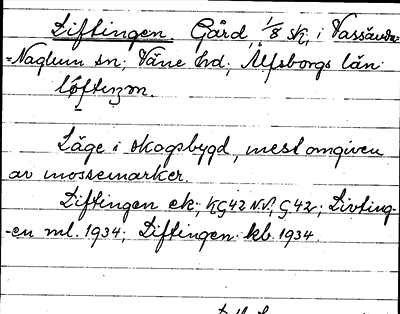 Diftingen. Gård, 1/8 sk, i Vassända-
-Naglum sn; Väne hd; Älfsborgs län.
Läge i skogsbygd, mest omgiven
av mossemarker.
Diftingen ek; KG42 NV; G42; Divting-
-en ml. 1934; Diftingen kb. 1934.